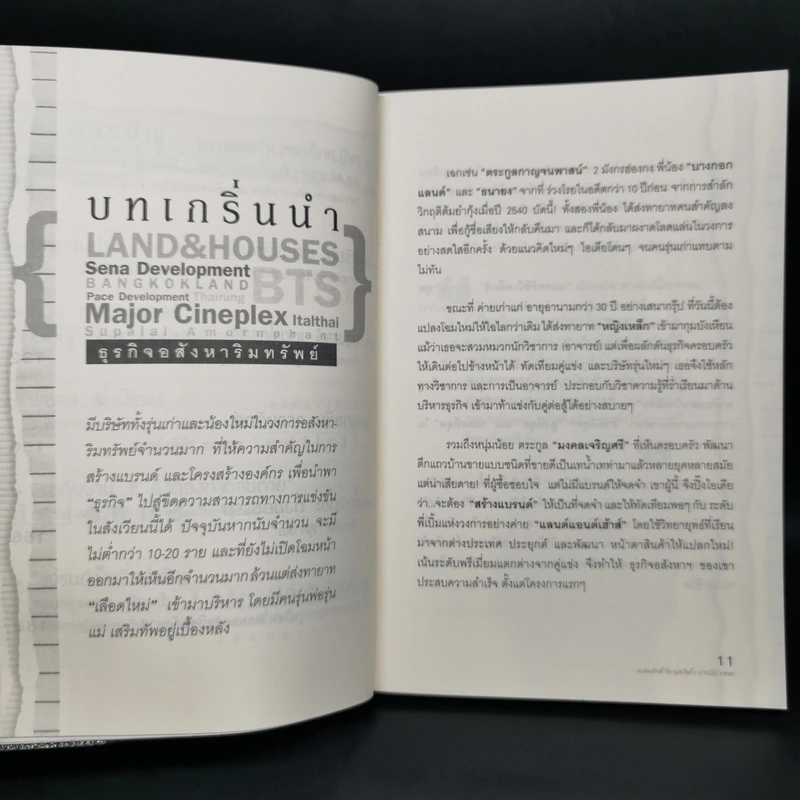 บทเกริ่นนำ
LAND&HOUSES
Sena Development
BANGKOKLAND
BTS
Pace Development Thairung
Major Cineplex Italthai
Supalai Amornphant
ธุรกิจอสังหาริมทรัพย์
มีบริษัททั้งรุ่นเก่าและน้องใหม่ในวงการอสังหา-
ริมทรัพย์จำนวนมาก ที่ให้ความสำคัญในการ
สร้างแบรนด์ และโครงสร้างองค์กร เพื่อนำพา
"ธุรกิจ" ไปสู่ขีดความสามารถทางการแข่งขัน
ในสังเวียนนี้ได้ ปัจจุบันหากนับจำนวน จะมี
ไม่ต่ำกว่า 10-20 ราย และที่ยังไม่เปิดโฉมหน้า
ออกมาให้เห็นอีกจำนวนมาก ล้วนแต่ส่งทายาท
"เลือดใหม่" เข้ามาบริหาร โดยมีคนรุ่นพ่อรุ่น
แม่ เสริมทัพอยู่เบื้องหลัง
เฉกเช่น "ตระกูลกาญจนพาสน์" 2 มังกรฮ่องกง พี่น้อง "บางกอก
แลนด์" และ "ธนายง" จากที่ ร่วงโรยในอดีตกว่า 10 ปีก่อน จากการสำลัก
วิกฤติต้มยำกุ้งเมื่อปี 2540 บัดนี้! ทั้งสองพี่น้อง ได้ส่งทายาทคนสำคัญลง
สนาม เพื่อกู้ชื่อเสียงให้กลับคืนมา และก็ได้กลับมาผงาดโลดแล่นในวงการ
อย่างสดใสอีกครั้ง ด้วยแนวคิดใหม่ๆ ไอเดียโดนๆ จนคนรุ่นเก่าแทบตาม
ไม่ทัน
ขณะที่ ค่ายเก่าแก่ อายุอานามกว่า 30 ปี อย่างเสนากรุ๊ป ที่วันนี้ต้อง
แปลงโฉมใหม่ให้ไฉไลกว่าเดิม ได้ส่งทายาท "หญิงเหล็ก" เข้ามากุมบังเหียน
แม้ว่าเธอจะสวมหมวกนักวิชาการ (อาจารย์) แต่เพื่อผลักดันธุรกิจครอบครัว
ให้เดินต่อไปข้างหน้าได้ ทัดเทียมคู่แข่ง และบริษัทรุ่นใหม่ๆ เธอจึงใช้หลัก
ทางวิชาการ และการเป็นอาจารย์ ประกอบกับวิชาความรู้ที่ร่ำเรียนมาด้าน
บริหารธุรกิจ เข้ามาท้าแข่งกับคู่ต่อสู้ได้อย่างสบายๆ
รวมถึงหนุ่มน้อย ตระกูล "มงคลเจริญศรี" ที่เห็นครอบครัว พัฒนา
ตึกแถวบ้านขายแบบชนิดที่ขายดีเป็นเทน้ำเทท่ามาแล้วหลายยุคหลายสมัย
แต่น่าเสียดาย! ที่ผู้ซื้อชอบใจ แต่ไม่มีแบรนด์ให้จดจำ เขาผู้นี้ จึงปิ๊งไอเดีย
ว่า...จะต้อง "สร้างแบรนด์" ให้เป็นที่จดจำ และให้ทัดเทียมพอๆ กับ ระดับ
พี่เบิ้มแห่งวงการอย่างค่าย "แลนด์แอนด์เฮ้าส์" โดยใช้วิทยายุทธ์ที่เรียน
มาจากต่างประเทศ ประยุกต์ และพัฒนา หน้าตาสินค้าให้แปลกใหม่!
เน้นระดับพรีเมี่ยมแตกต่างจากคู่แข่ง จึงทำให้ ธุรกิจอสังหาฯ ของเขา
ประสบความสำเร็จ ตั้งแต่โครงการแรกๆ
11